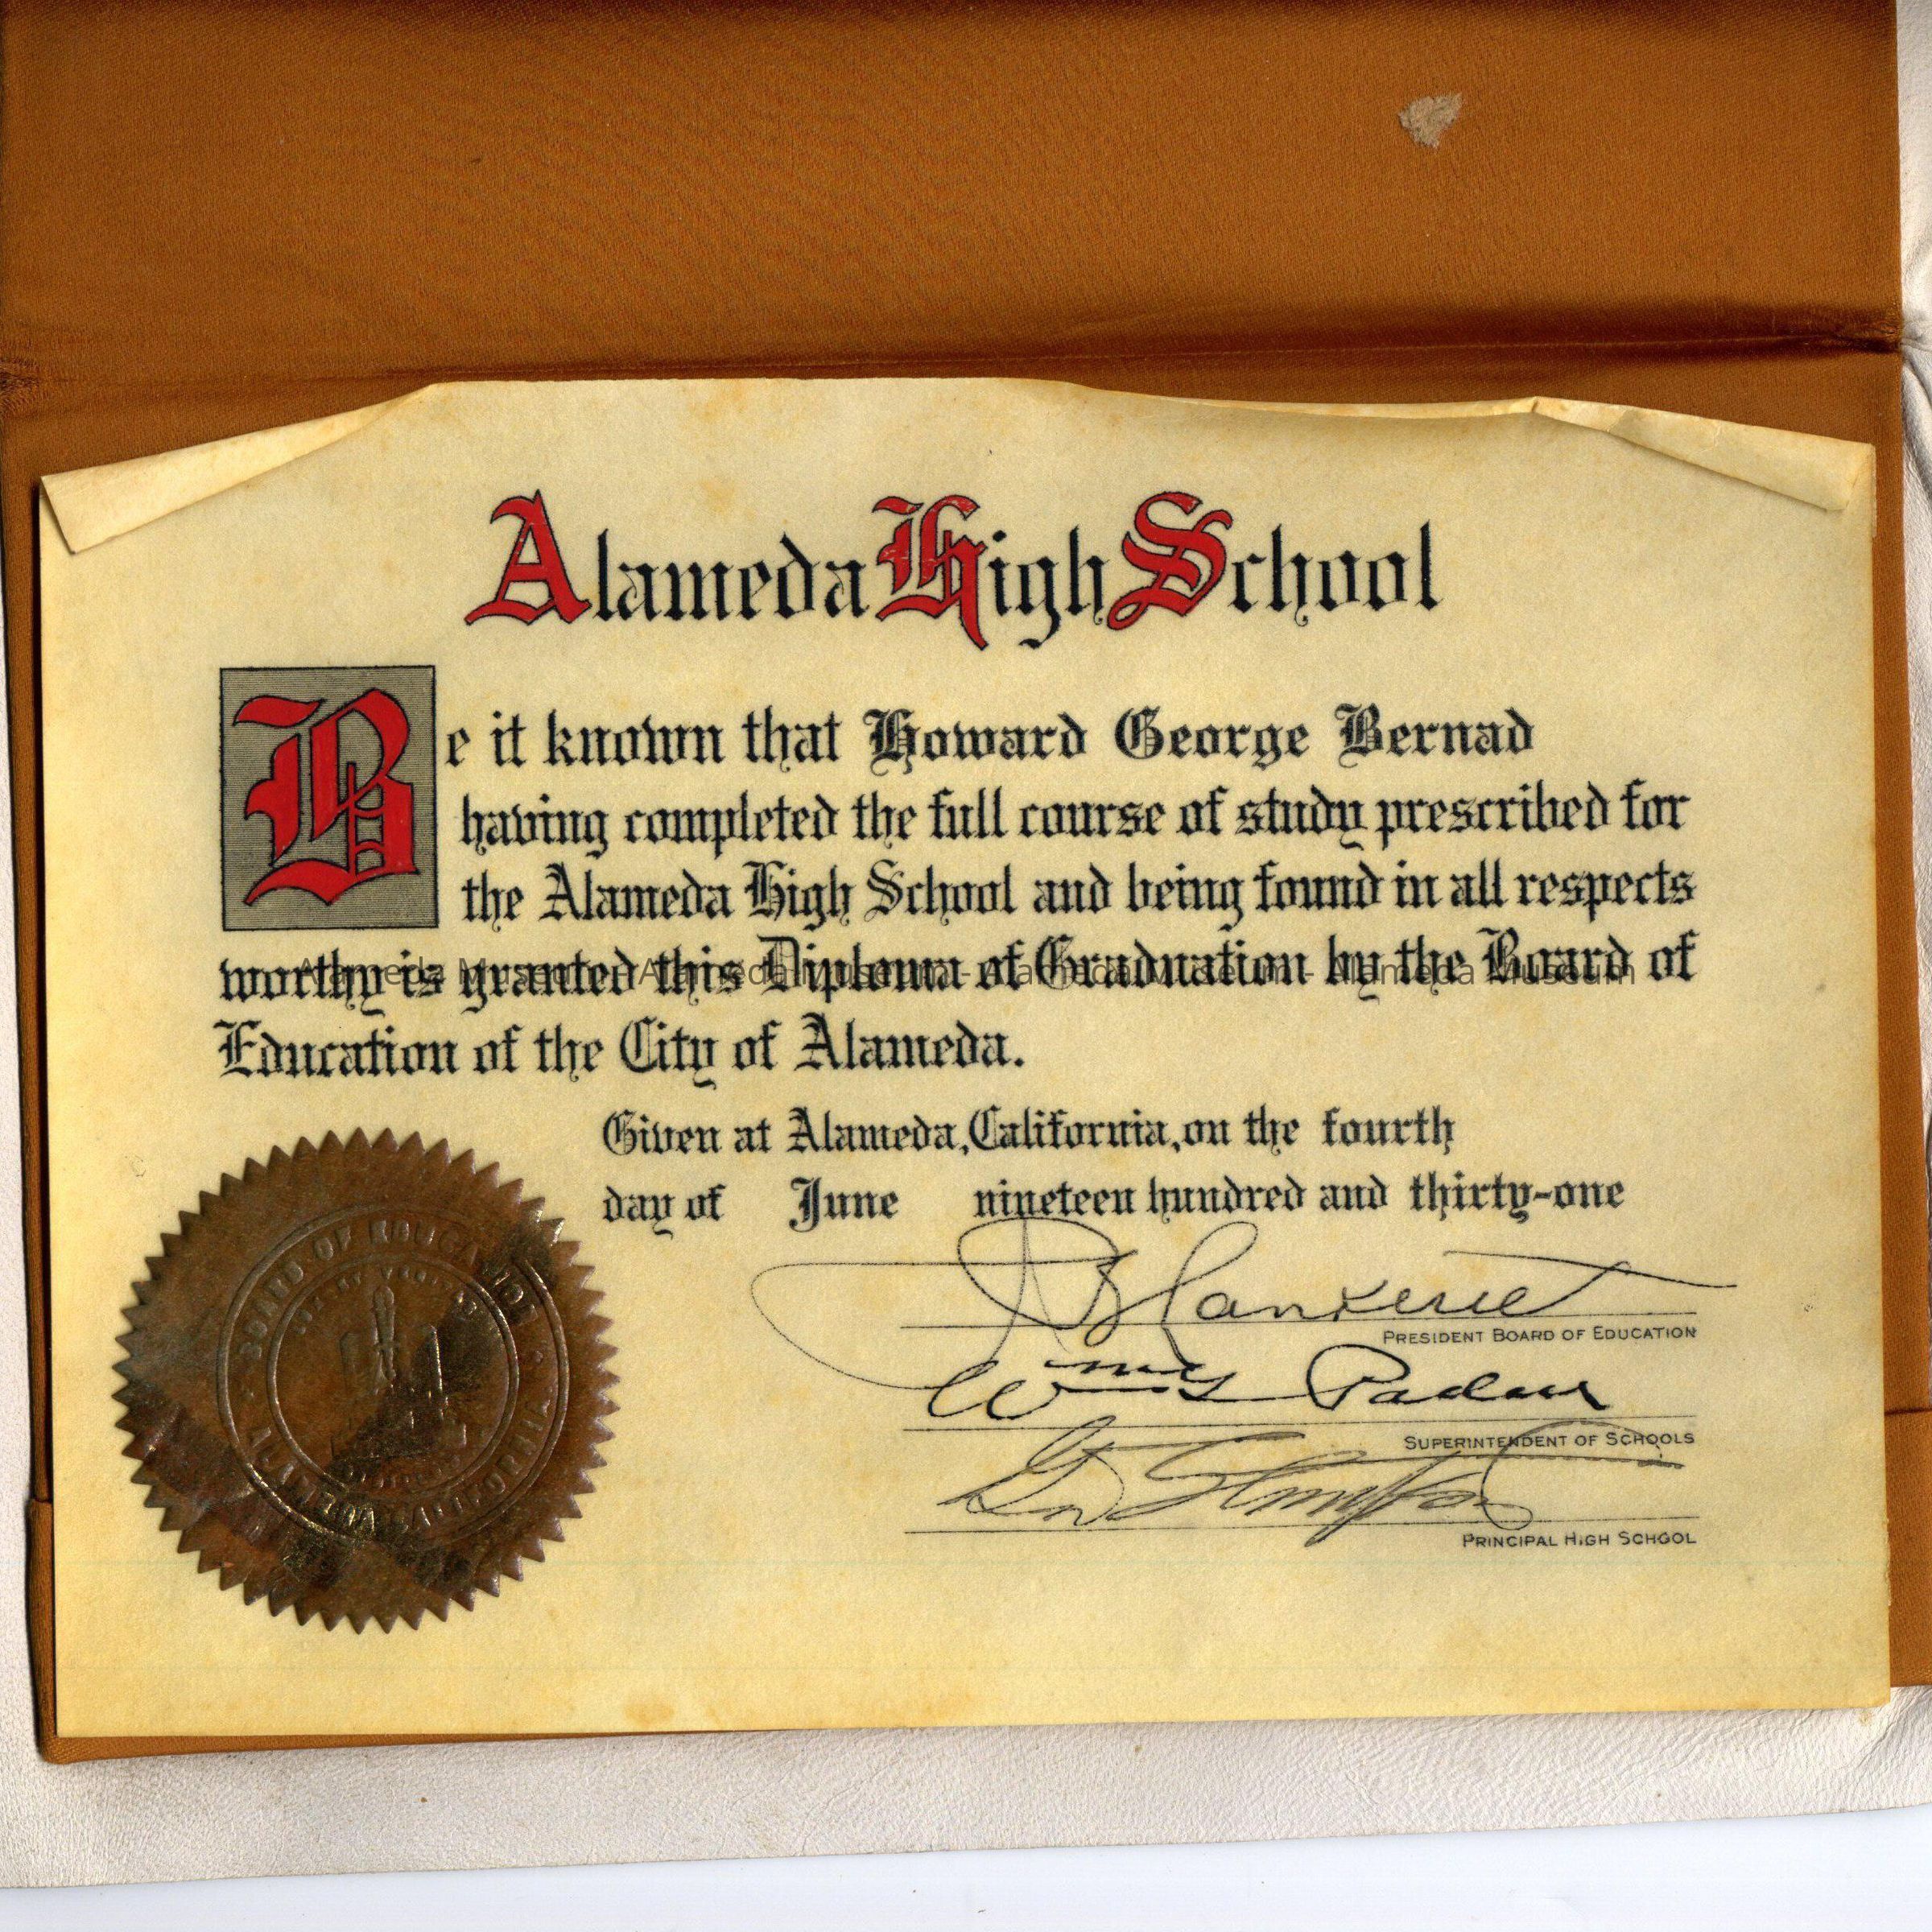 Alameda High School
Be it known that Howard George Bernad
having completed the full course of study prescribed for
the Alameda High School and being found in all respects
worthy is granted this Diploma of Graduation by the Board of
Alameda Museum - Alameda Museum - Alameda Museum - Alameda Museum
Education of the City of Alameda.
Given at Alameda, California, on the fourth
day of June nineteen hundred and thirty-one
PRESIDENT BOARD OF EDUCATION
Wm Paden
SUPERINTENDENT OF SCHOOLS
PRINCIPAL HIGH SCHOOL
BOARD OF EDUCATION
ALAMEDA CALIFORNIA